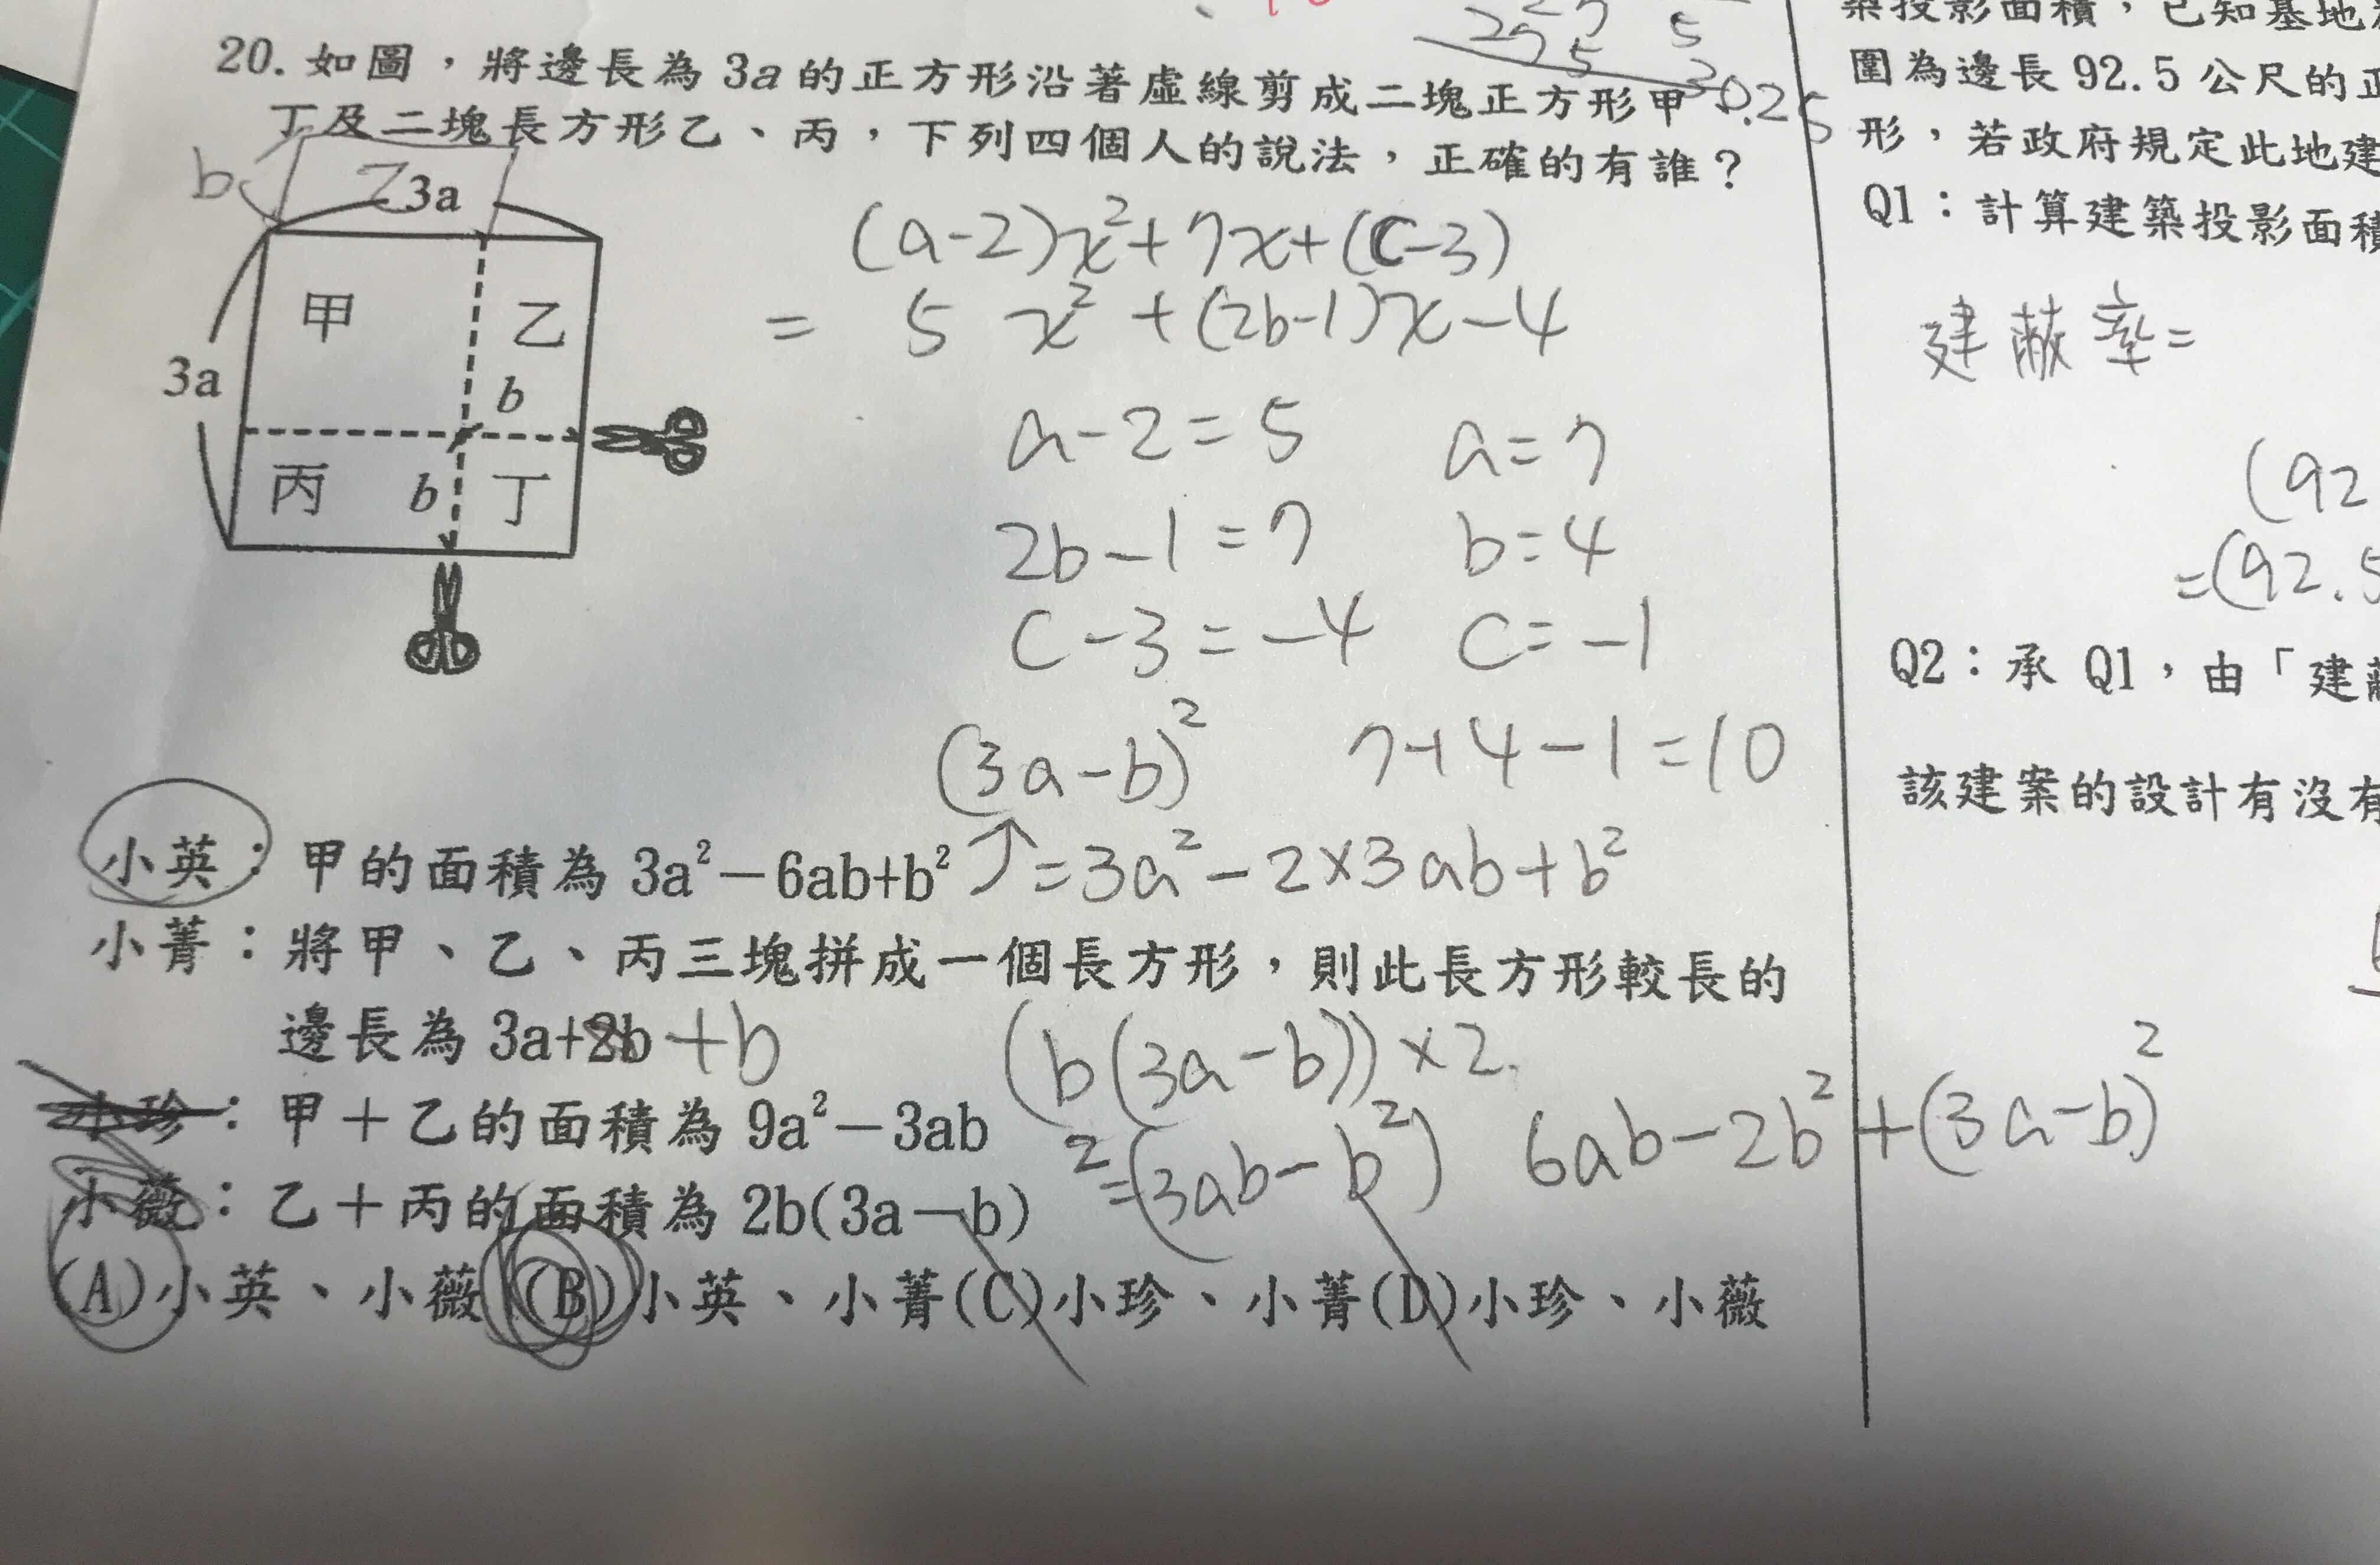 20. 如圖，將邊長為 3a 的正方形沿著虛線剪成二塊正方形甲、
丁及二塊長方形乙、丙，下列四個人的說法，正確的有誰？
30.25
b
乙
3a
甲
乙
3a
b
丙
b
丁
(a-2)x²+7x+(c-3)
= 5 x² +(2b-1)x-4
a-2=5 a=7
2b-1=7 b=4
c-3=-4 c=-1
(3a-b)² 7+4-1=10
小英：甲的面積為 3a²-6ab+b² =3a²-2×3ab+b²
小菁：將甲、乙、丙三塊拼成一個長方形，則此長方形較長的
邊長為 3a+2b +b (b(3a-b))×2
小珍：甲＋乙的面積為 9a²-3ab
2=(3ab-b²) 6ab-2b²+(3a-b)²
小薇：乙＋丙的面積為 2b(3a-b)
(A)小英、小薇 (B)小英、小菁(C)小珍、小菁(D)小珍、小薇
築投影面積，已知基地
圍為邊長 92.5 公尺的正
形，若政府規定此地建
Q1：計算建築投影面積
建蔽率=
(92
=(92.5
Q2：承 Q1，由「建蔽
該建案的設計有沒有